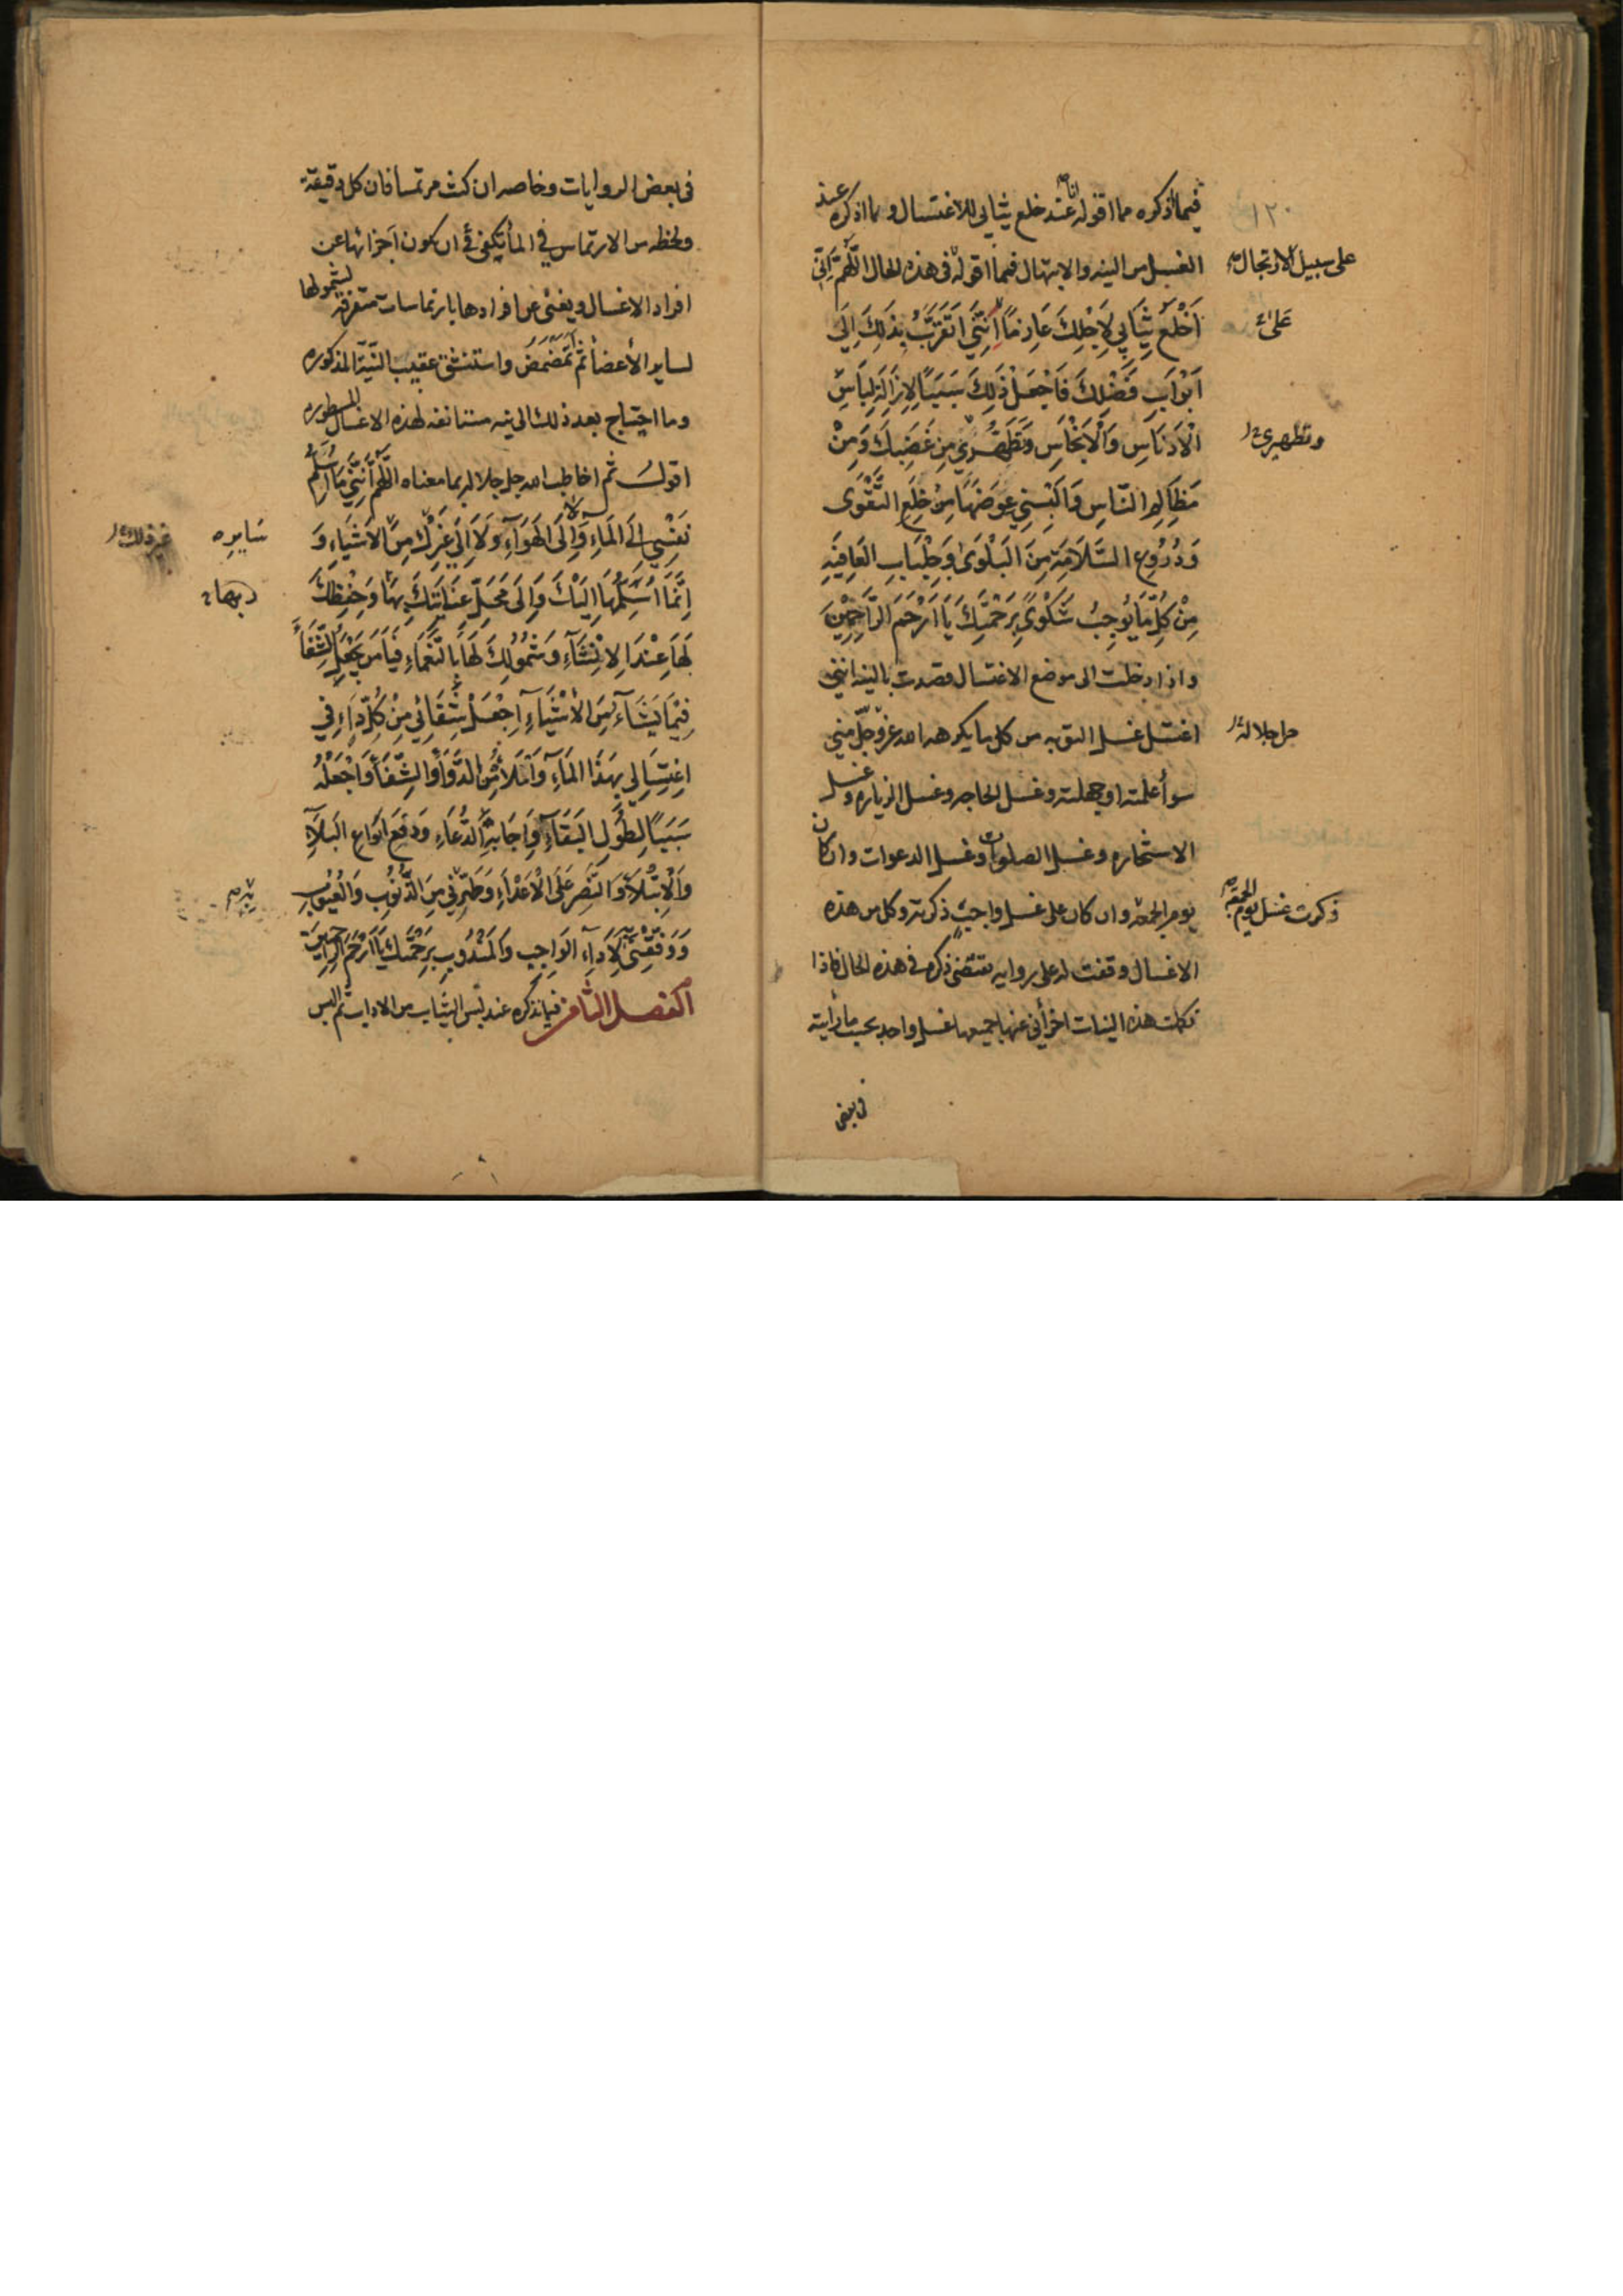 فيما اذكره مما اقوله انا عند خلع ثيابي للاغتسال وما اذكره عند
١٢٠
الغسل من النيه والابتهال فمما اقوله فى هذه الحال اللّهم اِنّى
على سبيل الارتجال
اَخْلَعُ ثِيَابِي لِاَجْلِكَ عَازِمًا اَنَّنِي اَتَقَرَّبُ بِذَلِكَ اِلَى
عَلىٰ
اَبْوَابِ فَضْلِكَ فَاجْعَلْ ذَلِكَ سَبَبًا لِاِزَالَةِ لِبَاسِ
الْاَدْنَاسِ وَالْاَنْجَاسِ وَتَطَهُّرِي مِنْ غَضَبِكَ وَمِنْ
وتطهيرى
مَظَالِمِ النَّاسِ وَاَلْبِسْنِي عِوَضَهَا مِنْ خِلَعِ التَّقْوَى
وَدُرُوعِ السَّلَامَةِ مِنَ الْبَلْوَى وَجِلْبَابِ الْعَافِيَةِ
مِنْ كُلِّ مَا يُوجِبُ شَكْوًى بِرَحْمَتِكَ يَا اَرْحَمَ الرَّاحِمِيْنَ
واذا دخلت الى موضع الاغتسال قصدت بالنيه اننى
اغتسل غسل التوبه من كل ما يكرهه الله عزّ وجلّ منى
جل جلاله
سوأ علمته او جهلته وغسل الحاجه وغسل الزياره وغسل
الاستخاره وغسل الصلوات وغسل الدعوات وان كان
يوم الجمعه وان كان على غسل واجب ذكرته وكل من هذه
ذكرت غسل يوم الجمعة
الاغسال وقفت له على روايه تقتضى ذكره فى هذه الحال فاذا
تكملت هذه النيات اجزأنى عنها جميعها غسل واحد بحسب ما رأيته
فى بعض
فى بعض الروايات وخاصه ان كنت مرتمسا فان كل دقيقة
ولحظه من الارتماس فى المأ تكفى فى ان تكون اجزائها عن
افراد الاغسال ويغنى عن افرادها بارتماسات متفرقة لشمولها
لساير الأعضأ ثم تمضمض واستنشق عقيب النيّة المذكوره
وما احتاج بعد ذلك الى نيه مستانفه لهذه الاغسال المسطوره
اقول ثم اخاطب الله جل جلاله بما معناه اللّهم اَنَّنِي مَا اُسَلِّمُ
نَفْسِي اِلَى الْمَاءِ وَلَا اِلَى الْهَوَآءِ وَلَا اِلَى غَيْرِكَ مِنَ الْاَشْيَاءِ وَ
سَايِرِه
غير ذلك
اِنَّمَا اُسَلِّمُهَا اِلَيْكَ وَاِلَى مَحَلِّ عِنَايَتِكَ بِهَا وَحِفْظِكَ
لَهَا عِنْدَ الْاِنْشَآءِ وَشُمُولِكَ لَهَا بِالنَّعْمَاءِ فَيَا مَنْ يَجْعَلُ الشِّفَاءَ
فِيْمَا يَشَآءُ مِنَ الْاَشْيَآءِ اجْعَلْ شِفَائِي مِنْ كُلِّ دَاءٍ فِي
اغْتِسَالِي بِهَذَا الْمَآءِ وَامْلَأْهُ مِنَ الدَّوَاءِ وَالشِّفَاءِ وَاجْعَلْهُ
سَبَبًا لِطُولِ الْبَقَآءِ وَاِجَابَةِ الدُّعَاءِ وَدَفْعِ اَنْوَاعِ الْبَلَآءِ
وَالْاِبْتِلَآءِ وَالنَّصْرِ عَلَى الْاَعْدَاءِ وَطَهِّرْنِي مِنَ الذُّنُوْبِ وَالْعُيُوْبِ
وَوَفِّقْنِي لِاَدَآءِ الْوَاجِبِ وَالْمَنْدُوْبِ بِرَحْمَتِكَ يَا اَرْحَمَ الرَّاحِمِيْنَ
الفصل الثامن فيما نذكره عند لبس الثياب من الاداب ثم البس